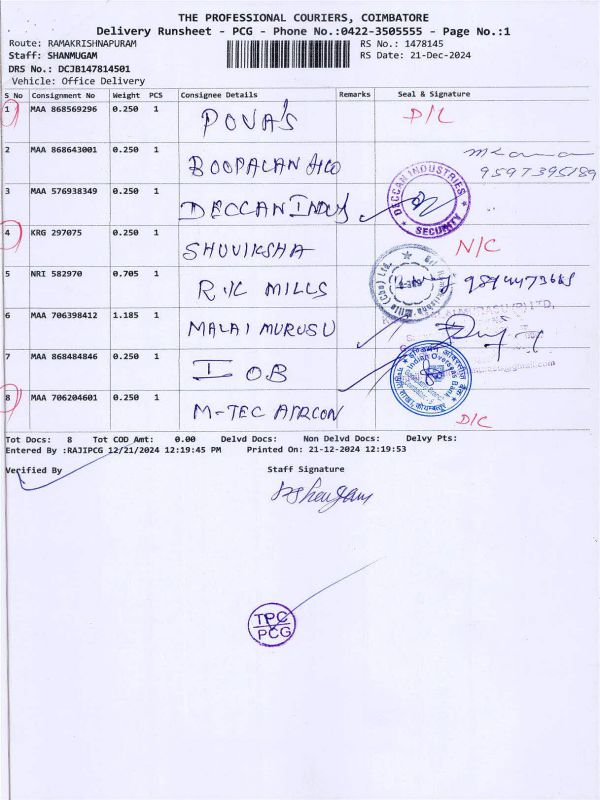 THE PROFESSIONAL COURIERS, COIMBATORE
Delivery Runsheet - PCG - Phone No.:0422-3505555 - Page No.:1
Route: RAMAKRISHNAPURAM RS No.: 1478145
Staff: SHANMUGAM RS Date: 21-Dec-2024
DRS No.: DCJB147814501
Vehicle: Office Delivery
S No Consignment No Weight PCS Consignee Details Remarks Seal & Signature
1 MAA 868569296 0.250 1 POVA'S D/L
2 MAA 868643001 0.250 1 BOOPALAN &CO
9597395189
3 MAA 576938349 0.250 1 DECCAN INDUS DECCAN INDUSTRIES SECURITY
4 KRG 297075 0.250 1 SHUVIKSHA N/C
5 NRI 582970 0.705 1 R.K MILLS
6 MAA 706398412 1.185 1 MALAI MURUSU
7 MAA 868484846 0.250 1 I OB Indian Overseas Bank
8 MAA 706204601 0.250 1 M-TEC AIRCON D/C
Tot Docs: 8 Tot COD Amt: 0.00 Delvd Docs: Non Delvd Docs: Delvy Pts:
Entered By :RAJIPCG 12/21/2024 12:19:45 PM Printed On: 21-12-2024 12:19:53
Verified By Staff Signature
TPC
PCG